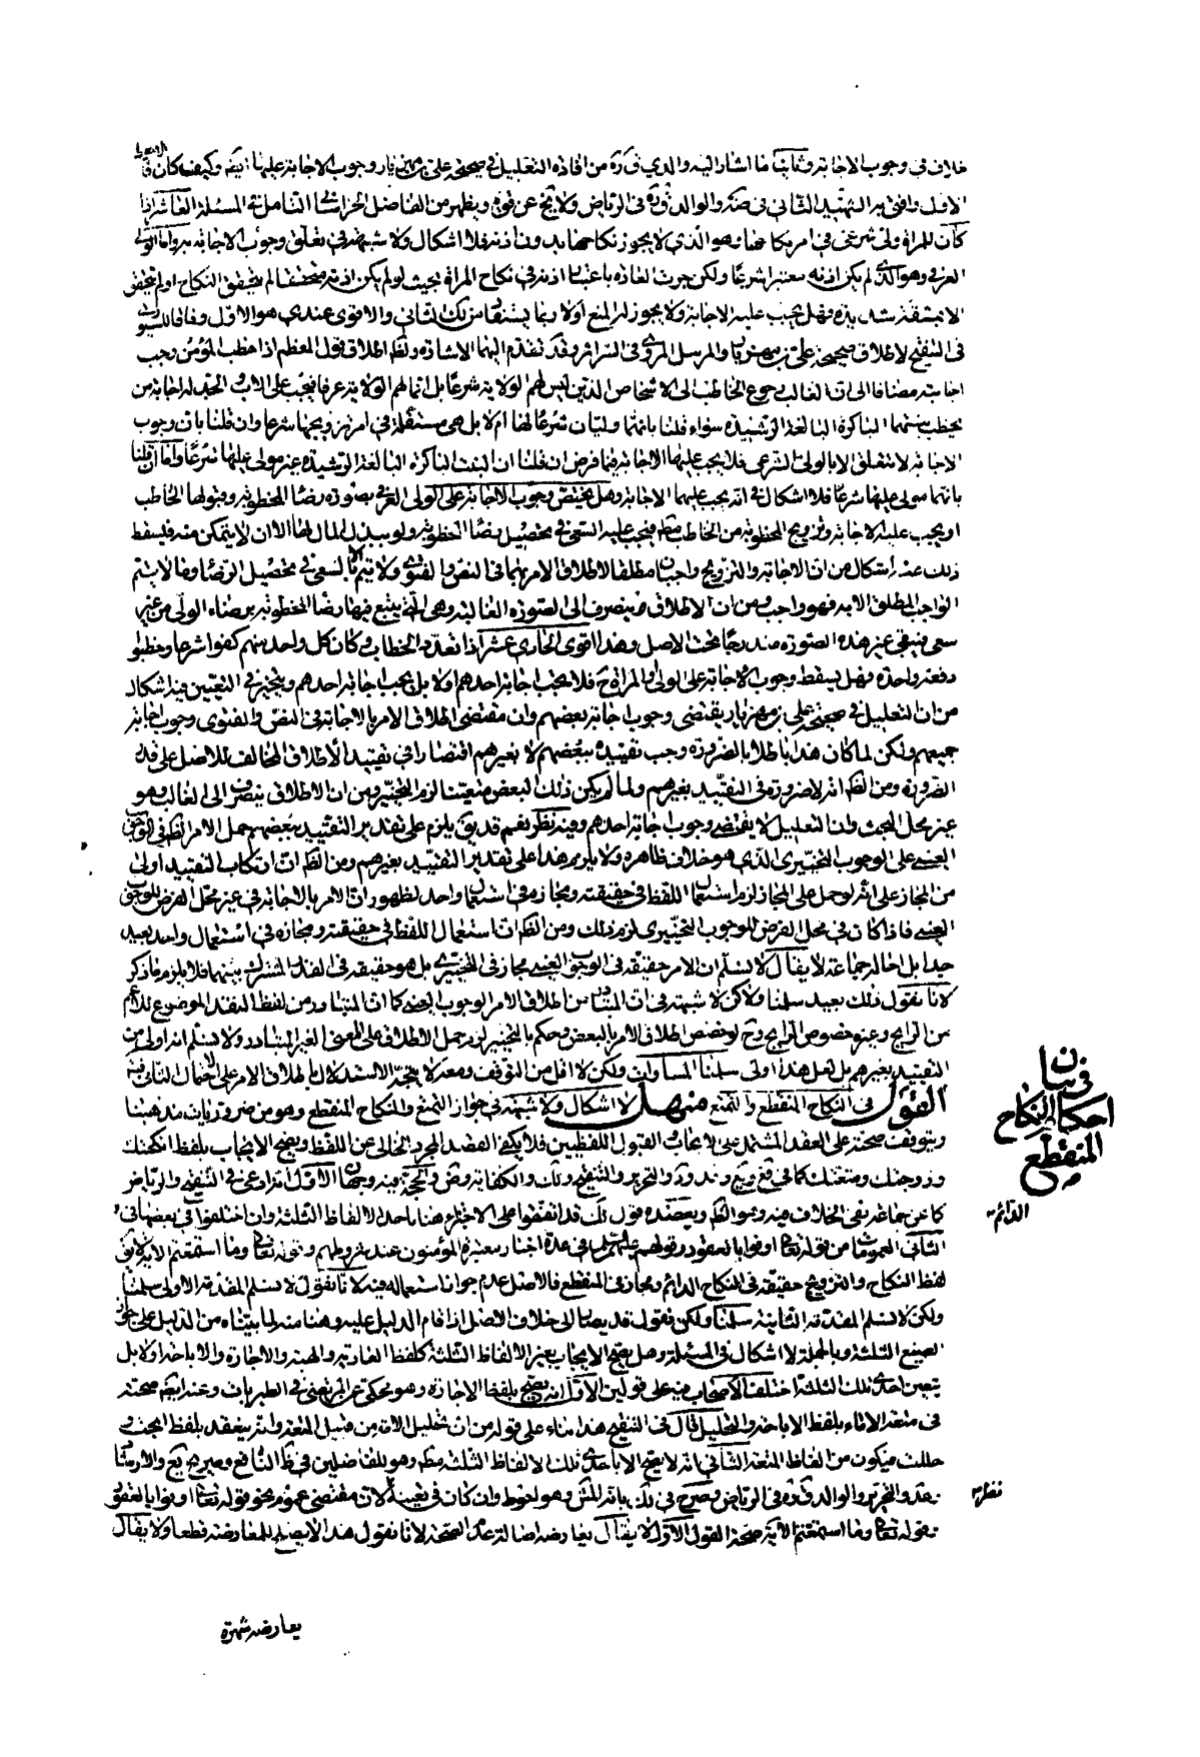 خلاف في وجوب الاجابة وثانيا ما اشار اليه والدي قدّه من افادة التعليل في صحيحة علي بن مهزيار وجوب الاجابة عليها
الاول وافق بر التهذيب الثاني في ضده والوالد قدّه في الرياض ولا يخ عن قوة ويظهر من الفاضل الخراساني التامل فيه المسئلة العاشر اذا
كان للمراة ولي شرعي في امر نكاحها وهو الذي لا يجوز نكاحها بدون اذنه فلا اشكال ولا شبهة في تعلق وجوب الاجابة به واما الولي
العرفي وهو الذي لم يكن اذنه معتبرا شرعا ولكن جرت العادة باعتبار اذنه في نكاح المراة بحيث لو لم يكن اذنه متحققا لم يتحقق النكاح او لم يتحقق
الا بمشقة شديدة فهل يجب عليه الاجابة ولا يجوز له المنع اولا ربما يستفاد من لك الثاني والاقوى عندي هو الاول وفاقا للسيوري
في التنقيح لاطلاق صحيحة علي بن مهزيار والمرسل المروي في السرائر وقد تقدم اليهما الاشارة ولظ اطلاق قول المعظم اذا خطب المؤمن وجب
اجابته مضافا الى ان الغالب رجوع الخاطب الى الاشخاص الذين ليس لهم الولاية شرعا بل انما لهم الولاية عرفا فيجب على الاب والجد له اجابة من
يخطب بنتهما الباكرة البالغة الرشيدة سواء قلنا بانهما وليان شرعا لها ام لا بل هي مستقلة في امر تزويجها شرعا وان قلنا بان وجوب
الاجابة لا يتعلق الا بالولي الشرعي فلا يجب عليهما الاجابة فيما فرض ان قلنا ان البنت الباكرة البالغة الرشيدة غير مولى عليها شرعا واما ان قلنا
بانها مولى عليها شرعا فلا اشكال في انه يجب عليهما الاجابة وهل يختص وجوب الاجابة على الولي العرفي بصورة رضا المخطوبة وقبولها الخاطب
او يجب عليه الاجابة وتزويج المخطوبة من الخاطب مط فيجب عليه السعي في تحصيل رضا المخطوبة ولو ببذل المال لها الا ان لا يتمكن منه فليسقط
ذلك عنه اشكال من ان الاجابة والتزويج واجبان مطلقا لاطلاق الامر بهما في النص والفتوى ولا يتم الا بالسعي في تحصيل الرضا وما لا يتم
الواجب المطلق الا به فهو واجب ومن ان الاطلاق ينصرف الى الصورة الغالبة وهي التي يتبع فيها رضا المخطوبة برضاء الولي من غير
سعي فيبقى غير هذه الصورة مندرجا تحت الاصل وهذا اقوى الحادي عشر اذا تعدد الخطاب وكان كل واحد منهم كفوا شرعا وخطبوا
دفعة واحدة فهل يسقط وجوب الاجابة على الولي والمراة ح فلا يجب اجابة احدهم اولا بل يجب اجابة احدهم ويتخير في التعيين فيه اشكال
من ان التعليل في صحيحة علي بن مهزيار يقتضي وجوب اجابة بعضهم وان مقتضى اطلاق الامر بالاجابة في النص والفتوى وجوب اجابة
جميعهم ولكن لما كان هذا باطلا بالضرورة وجب تقييده ببعضهم لا بغيرهم اقتصارا في تقييد الاطلاق المخالف للاصل على قدر
الضرورة ومن الظ انه لا ضرورة في التقييد بغيرهم ولما لم يكن ذلك البعض متعينا لزم التخيير ومن ان الاطلاق ينصرف الى الغالب وهو
غير محل البحث وان التعليل لا يقتضي وجوب اجابة احدهم وفيه نظر نعم قد يق يلزم على تقدير التقييد ببعضهم حمل الامر الظ في الوجوب
العيني على الوجوب التخييري الذي هو خلاف ظاهره ولا يلزم هذا على تقدير التقييد بغيرهم ومن الظ ان ارتكاب التقييد اولى
من المجاز على انه لو حمل على المجاز لزم استعمال اللفظ في حقيقته ومجازه في استعمال واحد لظهور ان الامر بالاجابة في غير محل الفرض للوجوب
العيني فاذا كان في محل الفرض للوجوب التخييري لزم ذلك ومن الظ ان استعمال اللفظ في حقيقته ومجازه في استعمال واحد بعيد
جدا بل احاله جماعة لا يقال لا نسلم ان الامر حقيقة في الوجوب العيني مجاز في التخييري بل هو حقيقة في القدر المشترك بينهما فلا يلزم ما ذكر
لانا نقول ذلك بعيد سلمنا ولكن لا شبهة في ان المتبادر من اطلاق الامر الوجوب العيني كما ان المتبادر من لفظ النقد الموضوع للاعم
من الرايج وغيره خصوص الرايج وح لو خصص اطلاق الامر بالبعض وحكم بالتخيير لزم حمل الاطلاق على المعنى الغير المتبادر ولا نسلم انه اولى من
التقييد بغيرهم بل لعل هذا اولى سلمنا المساواة ولكن لا اقل من التوقف ومعه لا يتجه الاستدلال باطلاق الامر على الاحتمال الثاني فيه
القول في النكاح المنقطع والتمتع منهل لا اشكال ولا شبهة في جواز التمتع والنكاح المنقطع وهو من ضروريات مذهبنا
ويتوقف صحته على العقد المشتمل على الايجاب والقبول اللفظيين فلا يكفي القصد المجرد الخالي عن اللفظ ويصح الايجاب بلفظ انكحتك
وزوجتك ومتعتك كما في والتحرير والتنقيح ولك والكفاية وض والحجة فيه وجهان الاول ادعي في التنقيح والرياض
كما عن جماعة نفي الخلاف فيه وهو الظ ويعضده قول لك قد اتفقوا على الاجتزاء هنا باحد الالفاظ الثلثة وان اختلفوا في بعضها في
الثاني العمومات من قوله تعالى اوفوا بالعقود وقولهم عليهم السلام في عدة اخبار معتبرة المؤمنون عند شروطهم وقوله تعالى وما استمتعتم الاية لا يق
لفظ النكاح والتزويج حقيقة في النكاح الدائم ومجاز في المنقطع فالاصل عدم جواز استعماله فيه لانا نقول لا نسلم المقدمة الاولى سلمنا
ولكن لا نسلم المقدمة الثانية سلمنا ولكن نقول قد يصار الى خلاف الاصل اذا قام الدليل عليه وهنا منه لما بيناه من الدليل على جواز
الصيغ الثلثة وبالجملة لا اشكال في المسئلة وهل يصح الايجاب بغير الالفاظ الثلثة كلفظ العارية والهبة والاجارة والاباحة اولا بل
يتعين احدى تلك الثلثة اختلف الاصحاب فيه على قولين الاول انه يصح بلفظ الاجارة وهو محكي عن المرتضى في الطبريات وعنه ايضا صحته
في متعة الاماء بلفظ الاباحة والتحليل قال في التنقيح هذا بناء على قوله من ان تحليل الامة من قبيل المتعة وانه ينعقد بلفظ ابحت و
حللت فيكون من الفاظ المتعة الثاني انه لا يصح الا باحدى تلك الالفاظ الثلثة مط وهو للفاضلين في النافع وصريح يع والارشاد
عد والتحرير والوالد قدّه في الرياض وصرح في لك بانه للاكثر وهو احوط وان كان في تعينه لان مقتضى عموم نحو قوله تعالى اوفوا بالعقود
قوله تعالى وما استمتعتم الاية صحة القول الاول لا يقال يعارضه اصالة عدم الصحة لانا نقول هذا لا يصلح للمعارضة قطعا ولا يقال
في بيان
احكام النكاح
المنقطع
الدائم
نظر
يعارضه شهرة